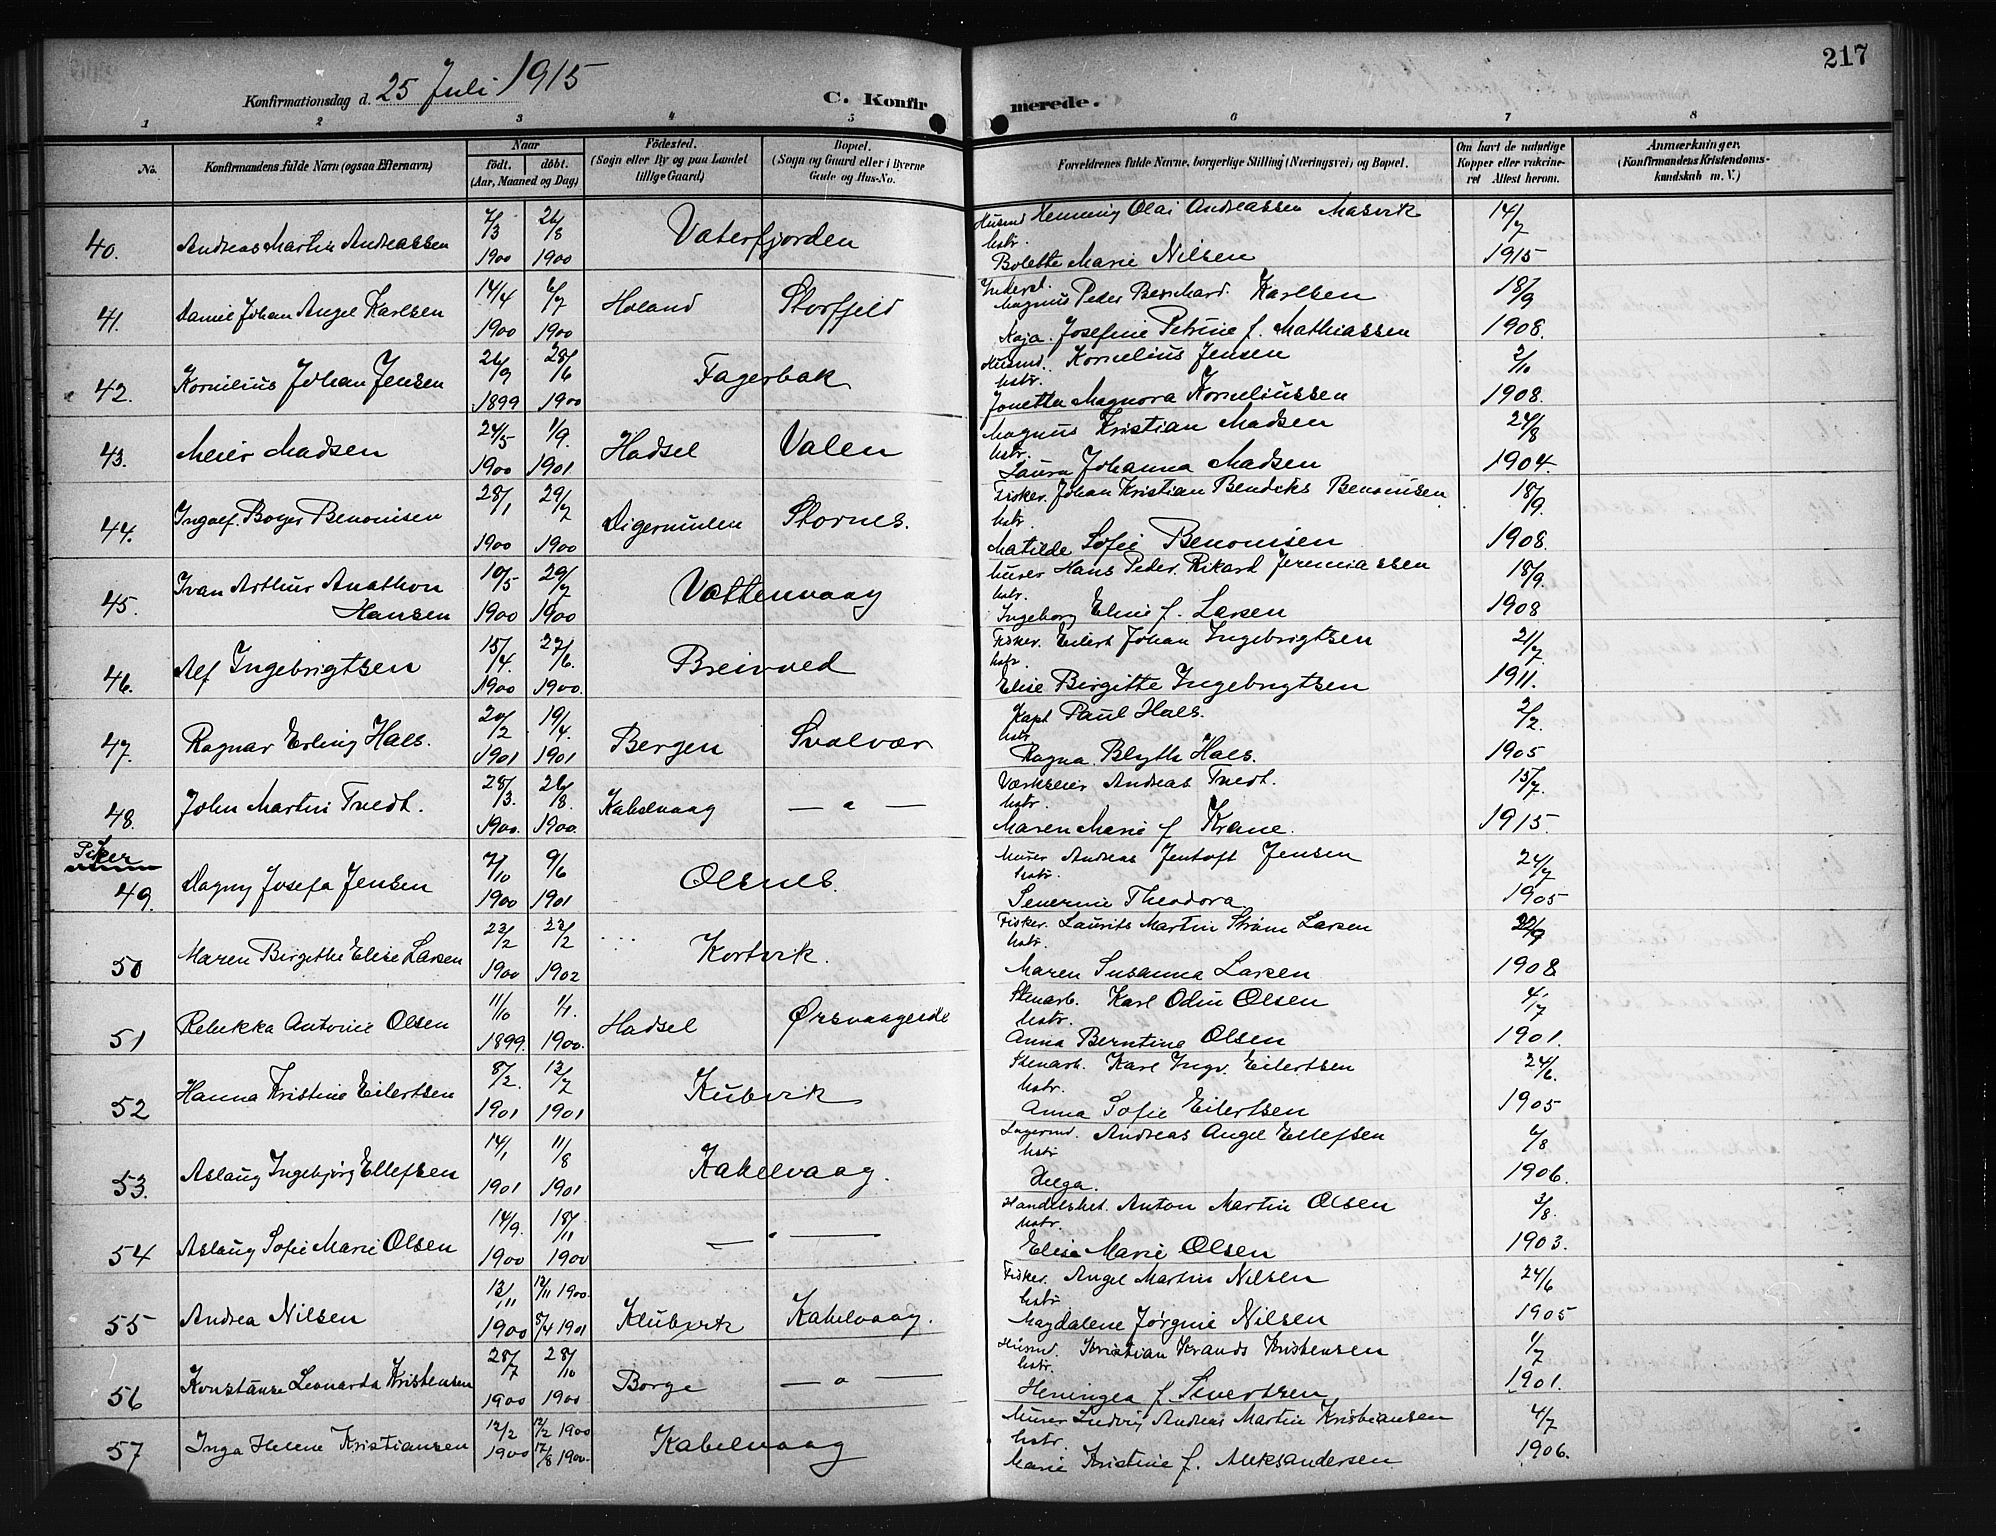 217
Konfirmationsdag d. 25 Juli 1915
C. Konfirmerede.
1 2 3 4 5 6 7 8
No. Konfirmandens fulde Navn (ogsaa Efternavn) Naar født. døbt. (Aar, Maaned og Dag) Fødested. (Sogn eller By og paa Landet tillige Gaard) Bopæl. (Sogn og Gaard eller i Byerne Gade og Hus-No. Forældrenes fulde Navne, borgerlige Stilling (Næringsvei) og Bopæl. Om havt de naturlige Kopper eller vakcineret Attest herom. Anmærkninger. (Konfirmandens Kristendomskundskab m. V.)
40. Andreas Martin Andreassen 7/3 1900 26/8 1900 Vaterfjorden Husmd Henning Olai Andreassen Masvik hstr. Bolette Marie Nilsen 14/7 1915
41. Daniel Johan Angel Karlsen 14/4 1900 6/7 1900 Holand Storfjeld Inderst. Magnus Peder Bernhard Karlsen Kaja Josefine Petrine f. Mathiassen 18/9 1908.
42. Kornelius Johan Jensen 26/9 1899 28/6 1900 Fagerbak Husmd. Kornelius Jensen hstr. Jonetta Magnora Korneliussen 2/10 1908.
43. Meier Madsen 24/5 1900 1/9. 1901 Hadsel Valen Magnus Kristian Madsen hstr. Laura Johanna Madsen 24/8 1904.
44. Ingolf Boyer Benonisen 28/1 1900 29/7 1900 Digermulen Stornes. Fisker. Johan Kristian Bendiks Benonisen hstr. Matilde Sofie Benonisen 18/9. 1908.
45. Ivan Arthur Anathon Hansen 10/5 1900 29/7 1900 Vattenvaag Murer Hans Peder Rikard Jeremiassen hstr. Ingeborg Eline f. Larsen 18/9. 1908
46. Alf Ingebrigtsen 15/4. 1900 27/6. 1900. Breivued Fisker. Eilert Johan Ingebrigtsen hstr. Elise Birgitte Ingebrigtsen 21/7. 1911.
47. Ragnar Erling Hals. 20/2 1901 19/4. 1901 Bergen Svolvær Kapt Paul Hals. hstr. Ragna Blyth Hals. 2/2. 1905
48. John Martin Tvedt. 28/3. 1900. 26/8. 1900. Kabelvaag — " — Værkseier Andreas Tvedt. hstr. Maren Marie f Krane. 15/7. 1915.
Piker
49. Dagny Josefa Jensen 7/10 1900 9/6 1901 Olsnes. Murer Andreas Jentoft Jensen hstr. Severine Theodora 24/7 1905
50 Maren Birgithe Elise Larsen 23/2 1900 23/2 1902 Kortvik. Fisker. Laurits Martin Strøm Larsen hstr. Maren Susanna Larsen 22/9 1908
51 Rebekka Antonie Olsen 11/10 1899. 1/1. 1900. Hadsel Ørsvaageide Stenarb. Karl Odin Olsen hstr. Anna Berntine Olsen 4/7 1901.
52 Hanna Kristine Eilertsen 8/2. 1901 12/7 1901 Kubvik Stenarb. Karl Ingv. Eilertsen hstr. Anna Sofie Eilertsen 24/6. 1905
53. Aslaug Ingebjørg Ellefsen 14/1 1901 11/8 1901 Kabelvaag. Lagermd. Andreas Angel Ellefsen hstr Helga. 6/8 1906.
54 Aslaug Sofie Marie Olsen 14/9. 1900 18/11 1900 — " — Handelsbet. Anton Martin Olsen hstr. Elise Marie Olsen 3/8. 1903.
55 Andrea Nilsen 12/11 1900 12/11 1900. 8/4 1901 Klubvik Kabelvaag. Fisker. Angel Martin Nilsen hstr. Magdalene Jørgine Nilsen 24/6 1905
56 Konstanse Leonarda Kristensen 28/7 1900 28/10 1900 Borge — " — Husmd. Kristian Krands Kristensen hstr. Heningea f Sivertsen 1/7 1901.
57 Inga Helene Kristiansen 12/2 1900 12/2 1900 12/8 1900. Kabelvaag Murer Ludvig Andreas Martin Kristiansen hstr. Marie Kristine f. Aleksandersen 4/7 1906.